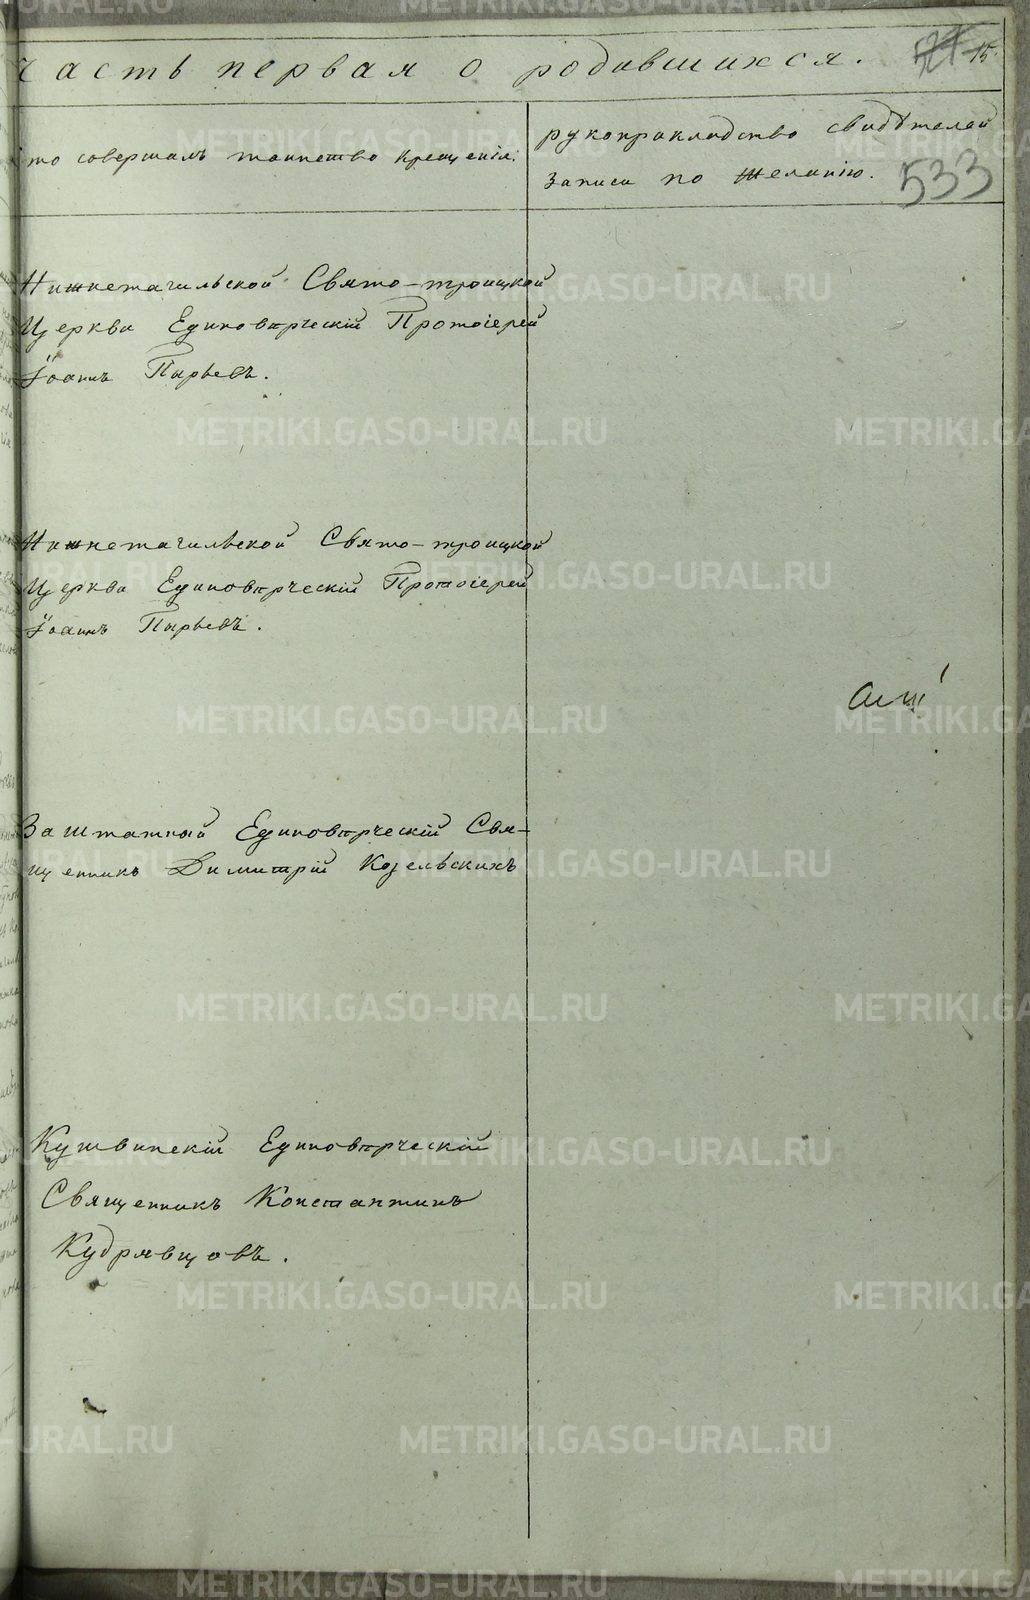 часть первая о родившихся. 15.
то совершалъ таинство крещенія:
рукоприкладство свидѣтелей
записи по желанію.
533
Нижнетагильской Свято-троицкой
Церкви Единовѣрческій Протоіерей
Іоаннъ Пырьевъ.
Нижнетагильской Свято-троицкой
Церкви Единовѣрческій Протоіерей
Іоаннъ Пырьевъ.
Заштатный Единовѣрческій Свя-
щенникъ Димитрій Козельскихъ
Кушвинскій Единовѣрческій
Священникъ Константинъ
Кудрявцовъ.
METRIKI.GASO-URAL.RU